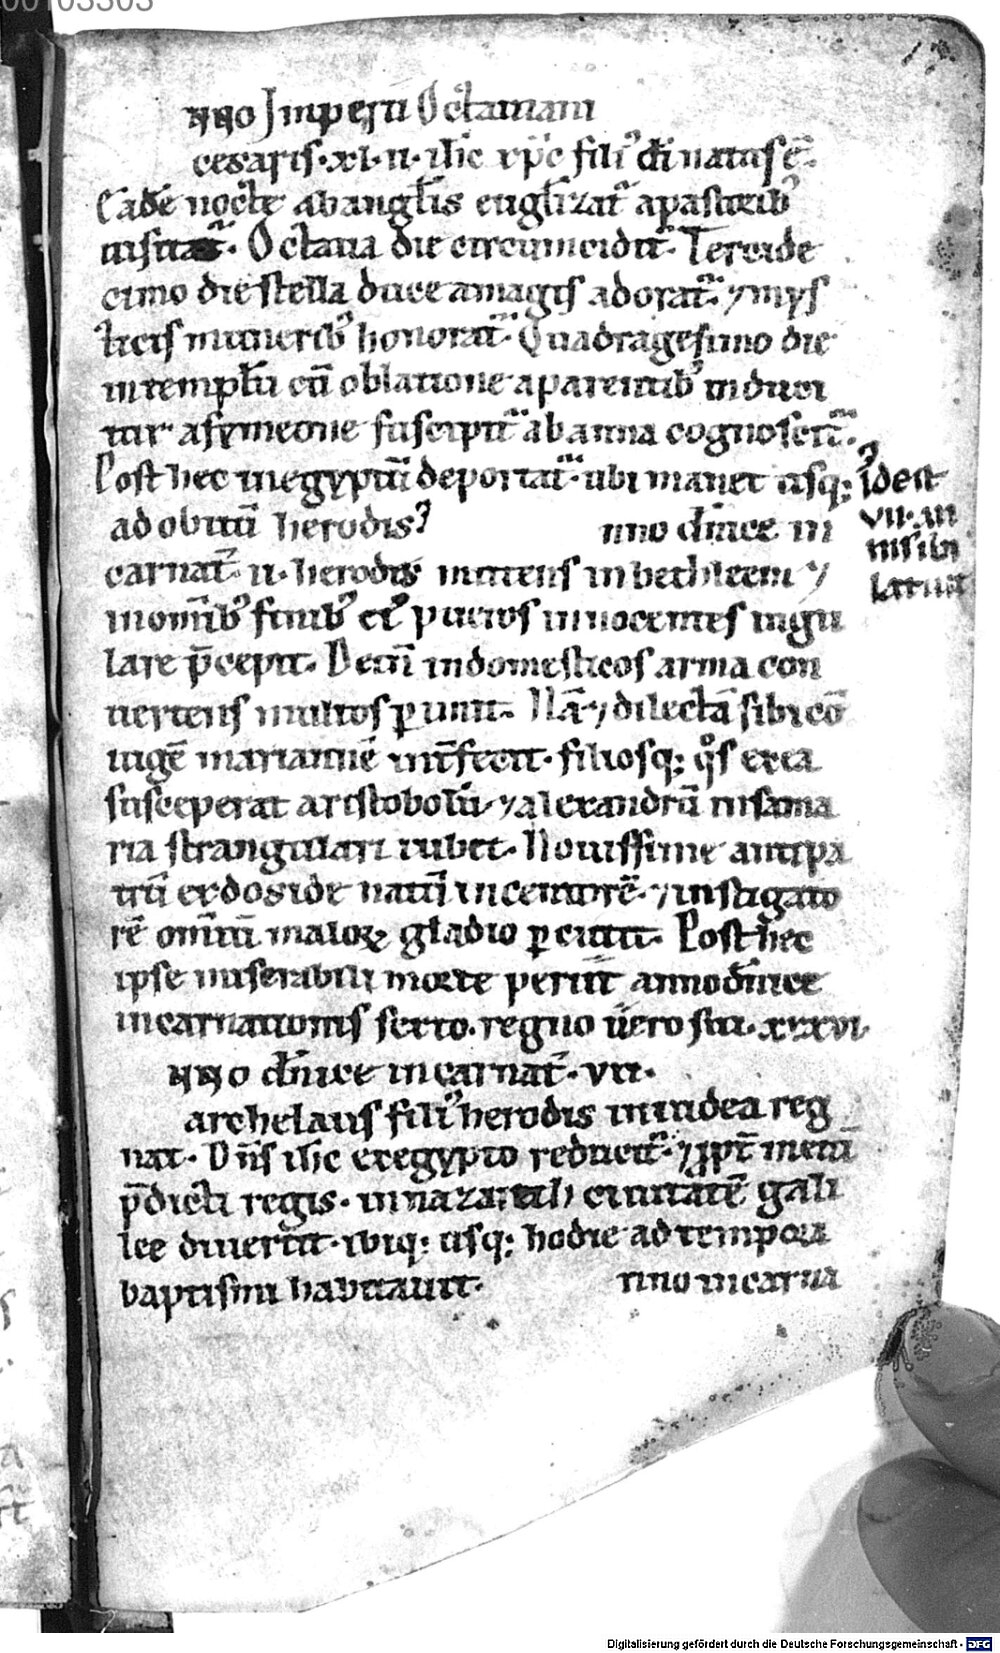 00103303
13.
nno Imperii Octauiani
cesaris·xl·ii·ihc xp̄c fili᷒ di natus ē·
Eadē nocte ab angĺis euglizat᷑ a pastorib᷒
uisitat᷑· Octaua die circumcidit᷑· Terciade
cimo die stella duce a magis adorat᷑ ⁊ mys
ticis munerib᷒ honorat᷑· Quadragesimo die
in templū cū oblatione a parentib᷒ induci
tur a symeone suscipit᷑ ab anna cognoscit᷑·
Post hec in egyptū deportat᷑· ubi manet usq;
ad obitū herodis
idest
vii·an
nno dn̄ice in
carnat̄· ii· herodis mittens in bethleem ⁊
in om̄ib᷒ finib᷒ ei᷒ pueros innocentes iugu
lare p̄cepit· Dein̄ in domesticos arma con
uertens multos ꝑimit· Nā ⁊ dilectā sibi cō
iugē mariannē int̄fecit· filiosq; qͦs ex ea
susceperat aristobolū ⁊ alexandrū in sama
ria strangulari iubet· Nouissime antipa
trū ex doside natū incentorē· ⁊ instigato
rē om̄iū maloꝝ gladio ꝑcutit· Post hec
ipse miserabili morte periit anno dn̄ice
incarnationis sexto· regno ūero sui· xxxvi·
nno dn̄ice incarnat̄·vii·
archelaus fili᷒ herodis in iudea reg
nat· Dn̄s ihc ex egypto reducit᷑· ⁊ ꝓpt̄ metū
p̄dicti regis· in nazareth ciuitatē gali
lee diuertit· ibiq; usq; hodie ad tempora
baptismi habitauit·
nno incarna
Digitalisierung gefördert durch die Deutsche Forschungsgemeinschaft - DFG